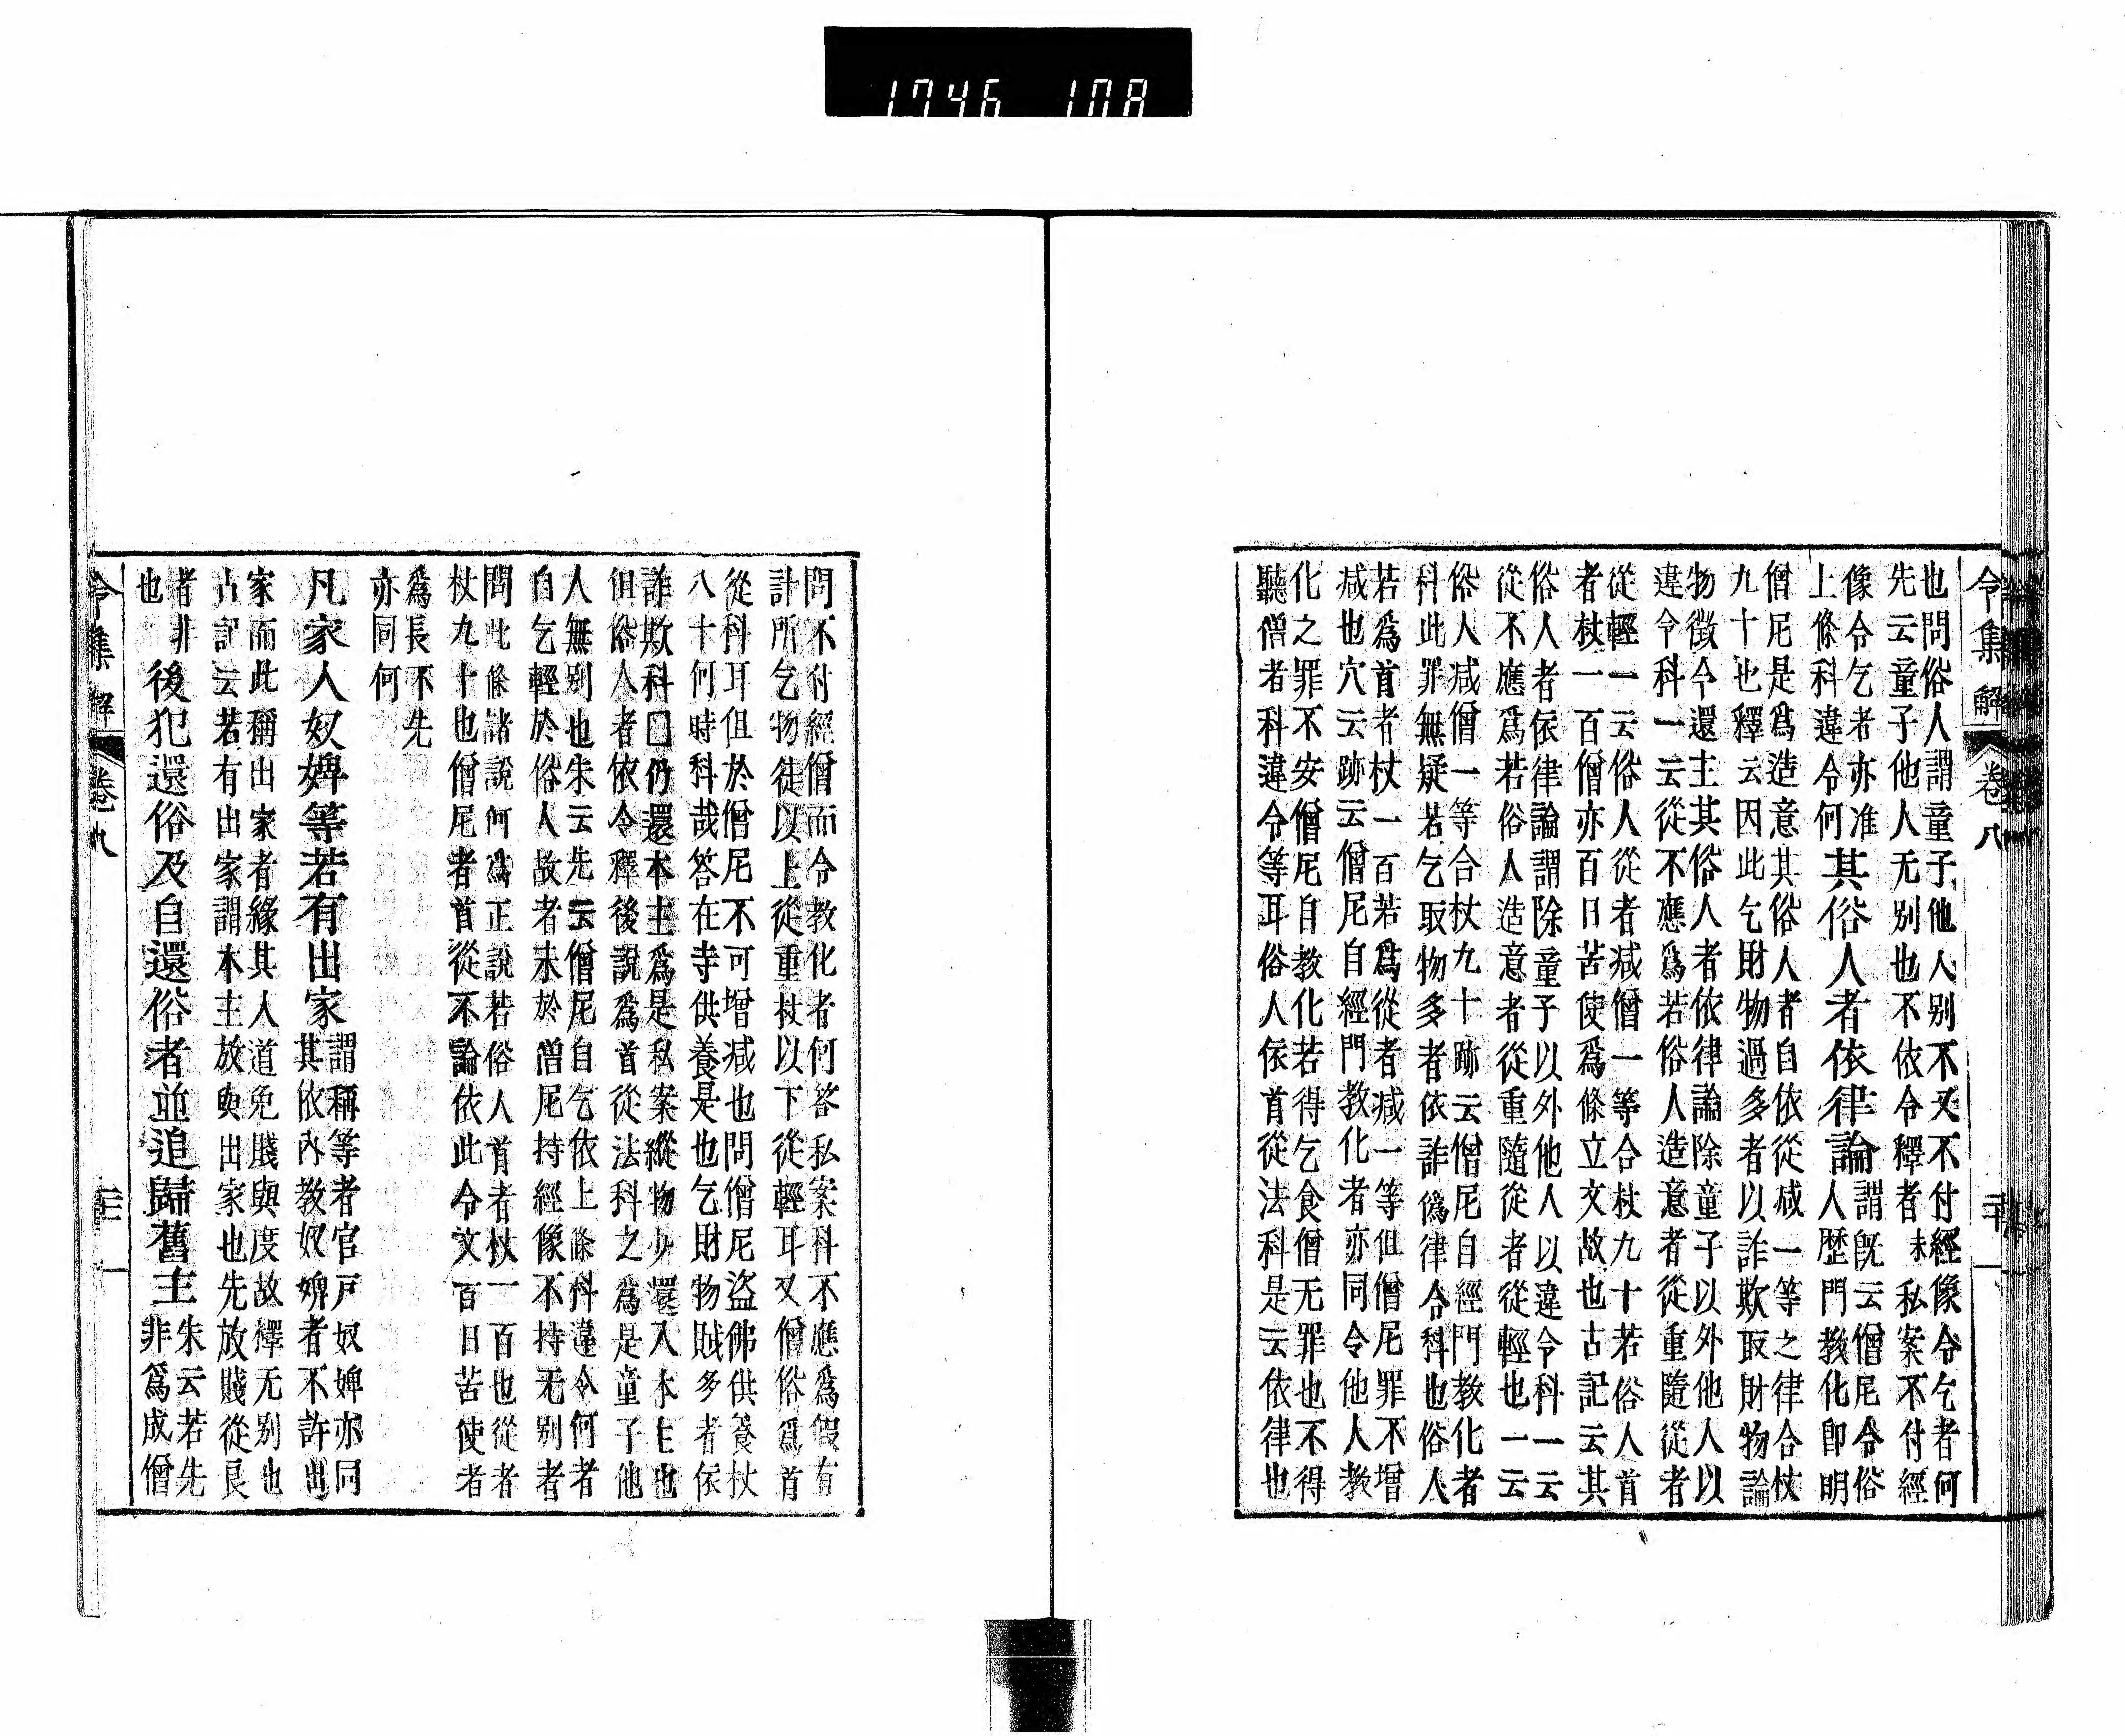 1746 108
令集解 卷八 二十
也問俗人謂童子他人别不又不付經像令乞者何
先云童子他人无别也不依令釋者未私案不付經
像令乞者亦准
上條科違令何
其俗人者依律論
謂既云僧尼令俗
人歴門教化卽明
僧尼是爲造意其俗人者自依從减一等之律合杖
九十也釋云因此乞財物過多者以詐欺取財物論
物徵今還主其俗人者依律論除童子以外他人以
違令科一云從不應爲若俗人造意者從重隨從者
從輕一云俗人從者减僧一等合杖九十若俗人首
者杖一百僧亦百日苦使爲條立文故也古記云其
俗人者依律論謂除童子以外他人以違令科一云
從不應爲若俗人造意者從重隨從者從輕也一云
俗人减僧一等合杖九十跡云僧尼自經門教化者
科此罪無疑若乞取物多者依詐僞律令科也俗人
若爲首者杖一百若爲從者减一等但僧尼罪不增
减也穴云跡云僧尼自經門教化者亦同令他人教
化之罪不安僧尼自教化若得乞食僧无罪也不得
聽僧者科違令等耳俗人依首從法科是云依律也
問不付經僧而令教化者何答私案科不應爲假有
計所乞物徒以上從重杖以下從輕耳又僧俗爲首
從科耳但於僧尼不可增减也問僧尼盜佛供養杖
八十何時科哉答在寺供養是也乞財物賊多者依
詐欺科□仍還本主爲是私案縱物少還入本主也
但俗人者依令釋後說爲首從法科之爲是童子他
人無别也朱云先云僧尼自乞依上條科違令何者
自乞輕於俗人故者未於僧尼持經像不持无别者
問此條諸說何爲正說若俗人首者杖一百也從者
杖九十也僧尼者首從不論依此令文百日苦使者
爲長不先
亦同何
凡家人奴婢等若有出家
謂稱等者官戸奴婢亦同
其依內教奴婢者不許出
家而此稱出家者緣其人道免賤與度故釋无别也
古記云若有出家謂本主放與出家也先放賤從良
者非
也
後犯還俗及自還俗者並追歸舊主
朱云若先
非爲成僧
令集解 卷八 二十一